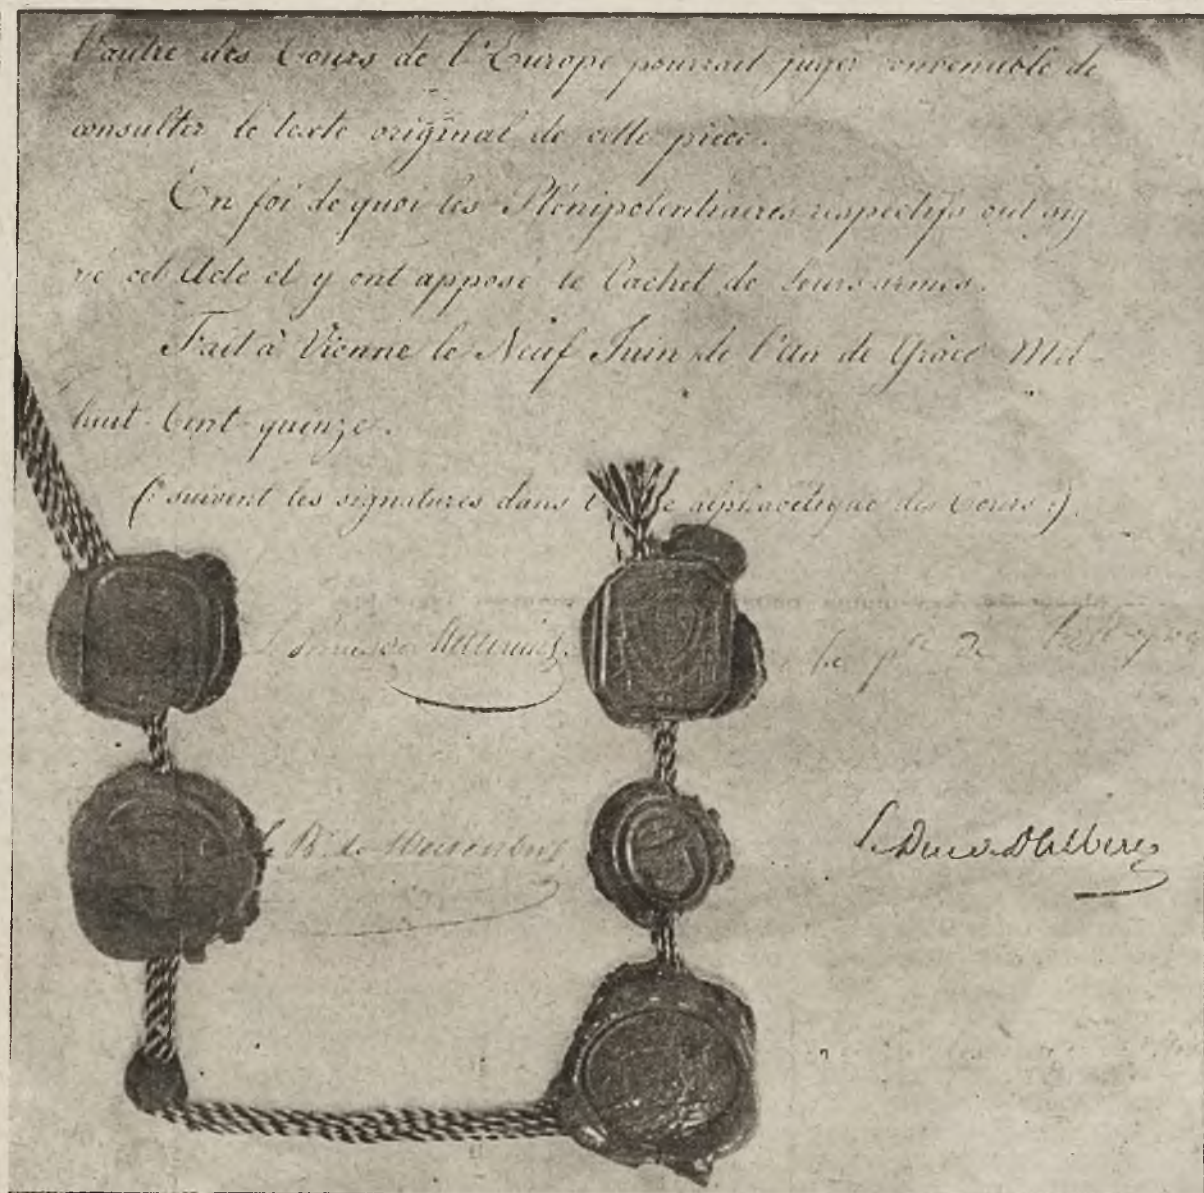 l'autre des Cours de l'Europe pourroit juger convenable de
consulter le texte original de cette pièce.
En foi de quoi les Plénipotentiaires respectifs ont sig
né cet Acte et y ont apposé le Cachet de leurs armes.
Fait à Vienne le Neuf Juin de l'An de Grâce Mil-
huit-Cent-quinze.
(: suivent les signatures dans l' e alphabétique des Cours :)
Metternich. le pce de
B. de
le Duc de Dalberg